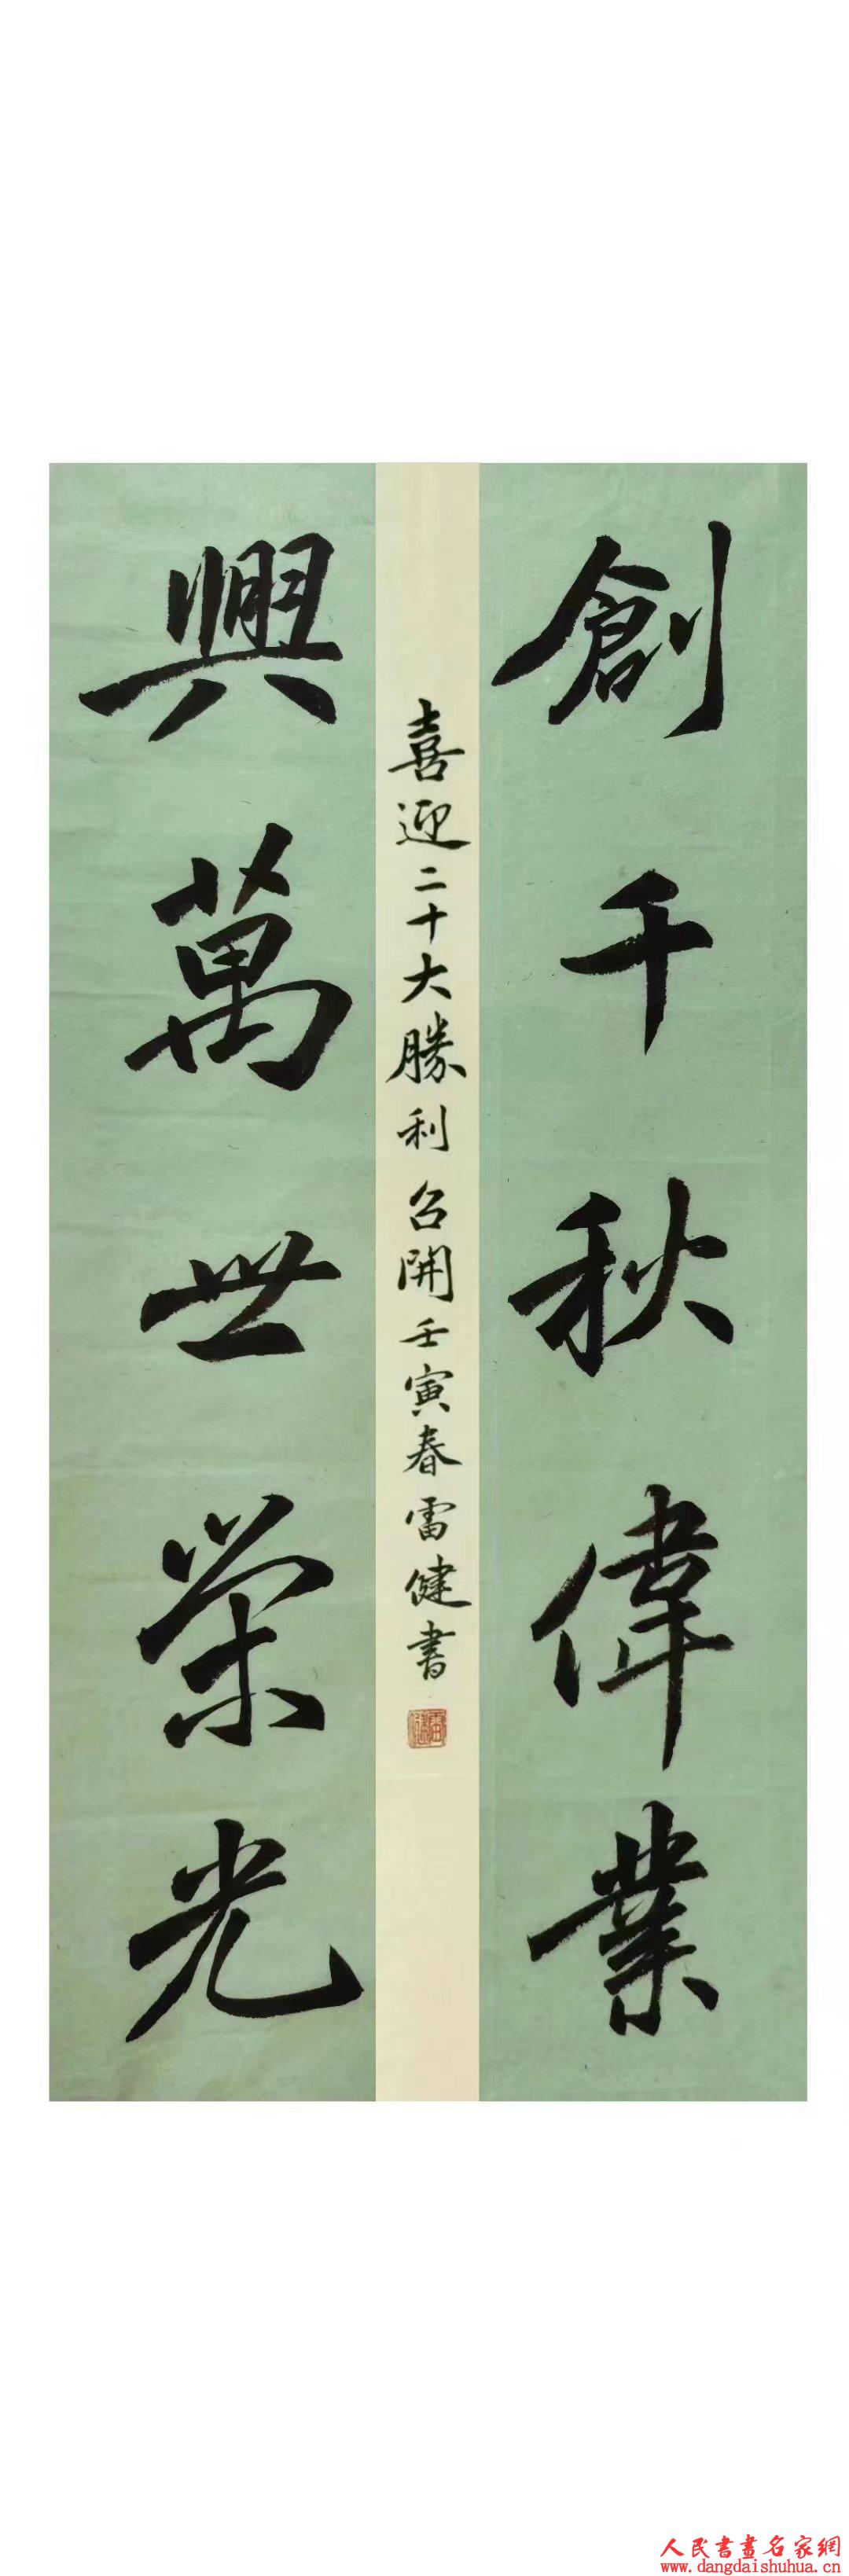 創千秋偉業
喜迎二十大勝利召開壬寅春雷健書
興萬世荣光
人民書畫名家網
www.dangdaishuhua.cn